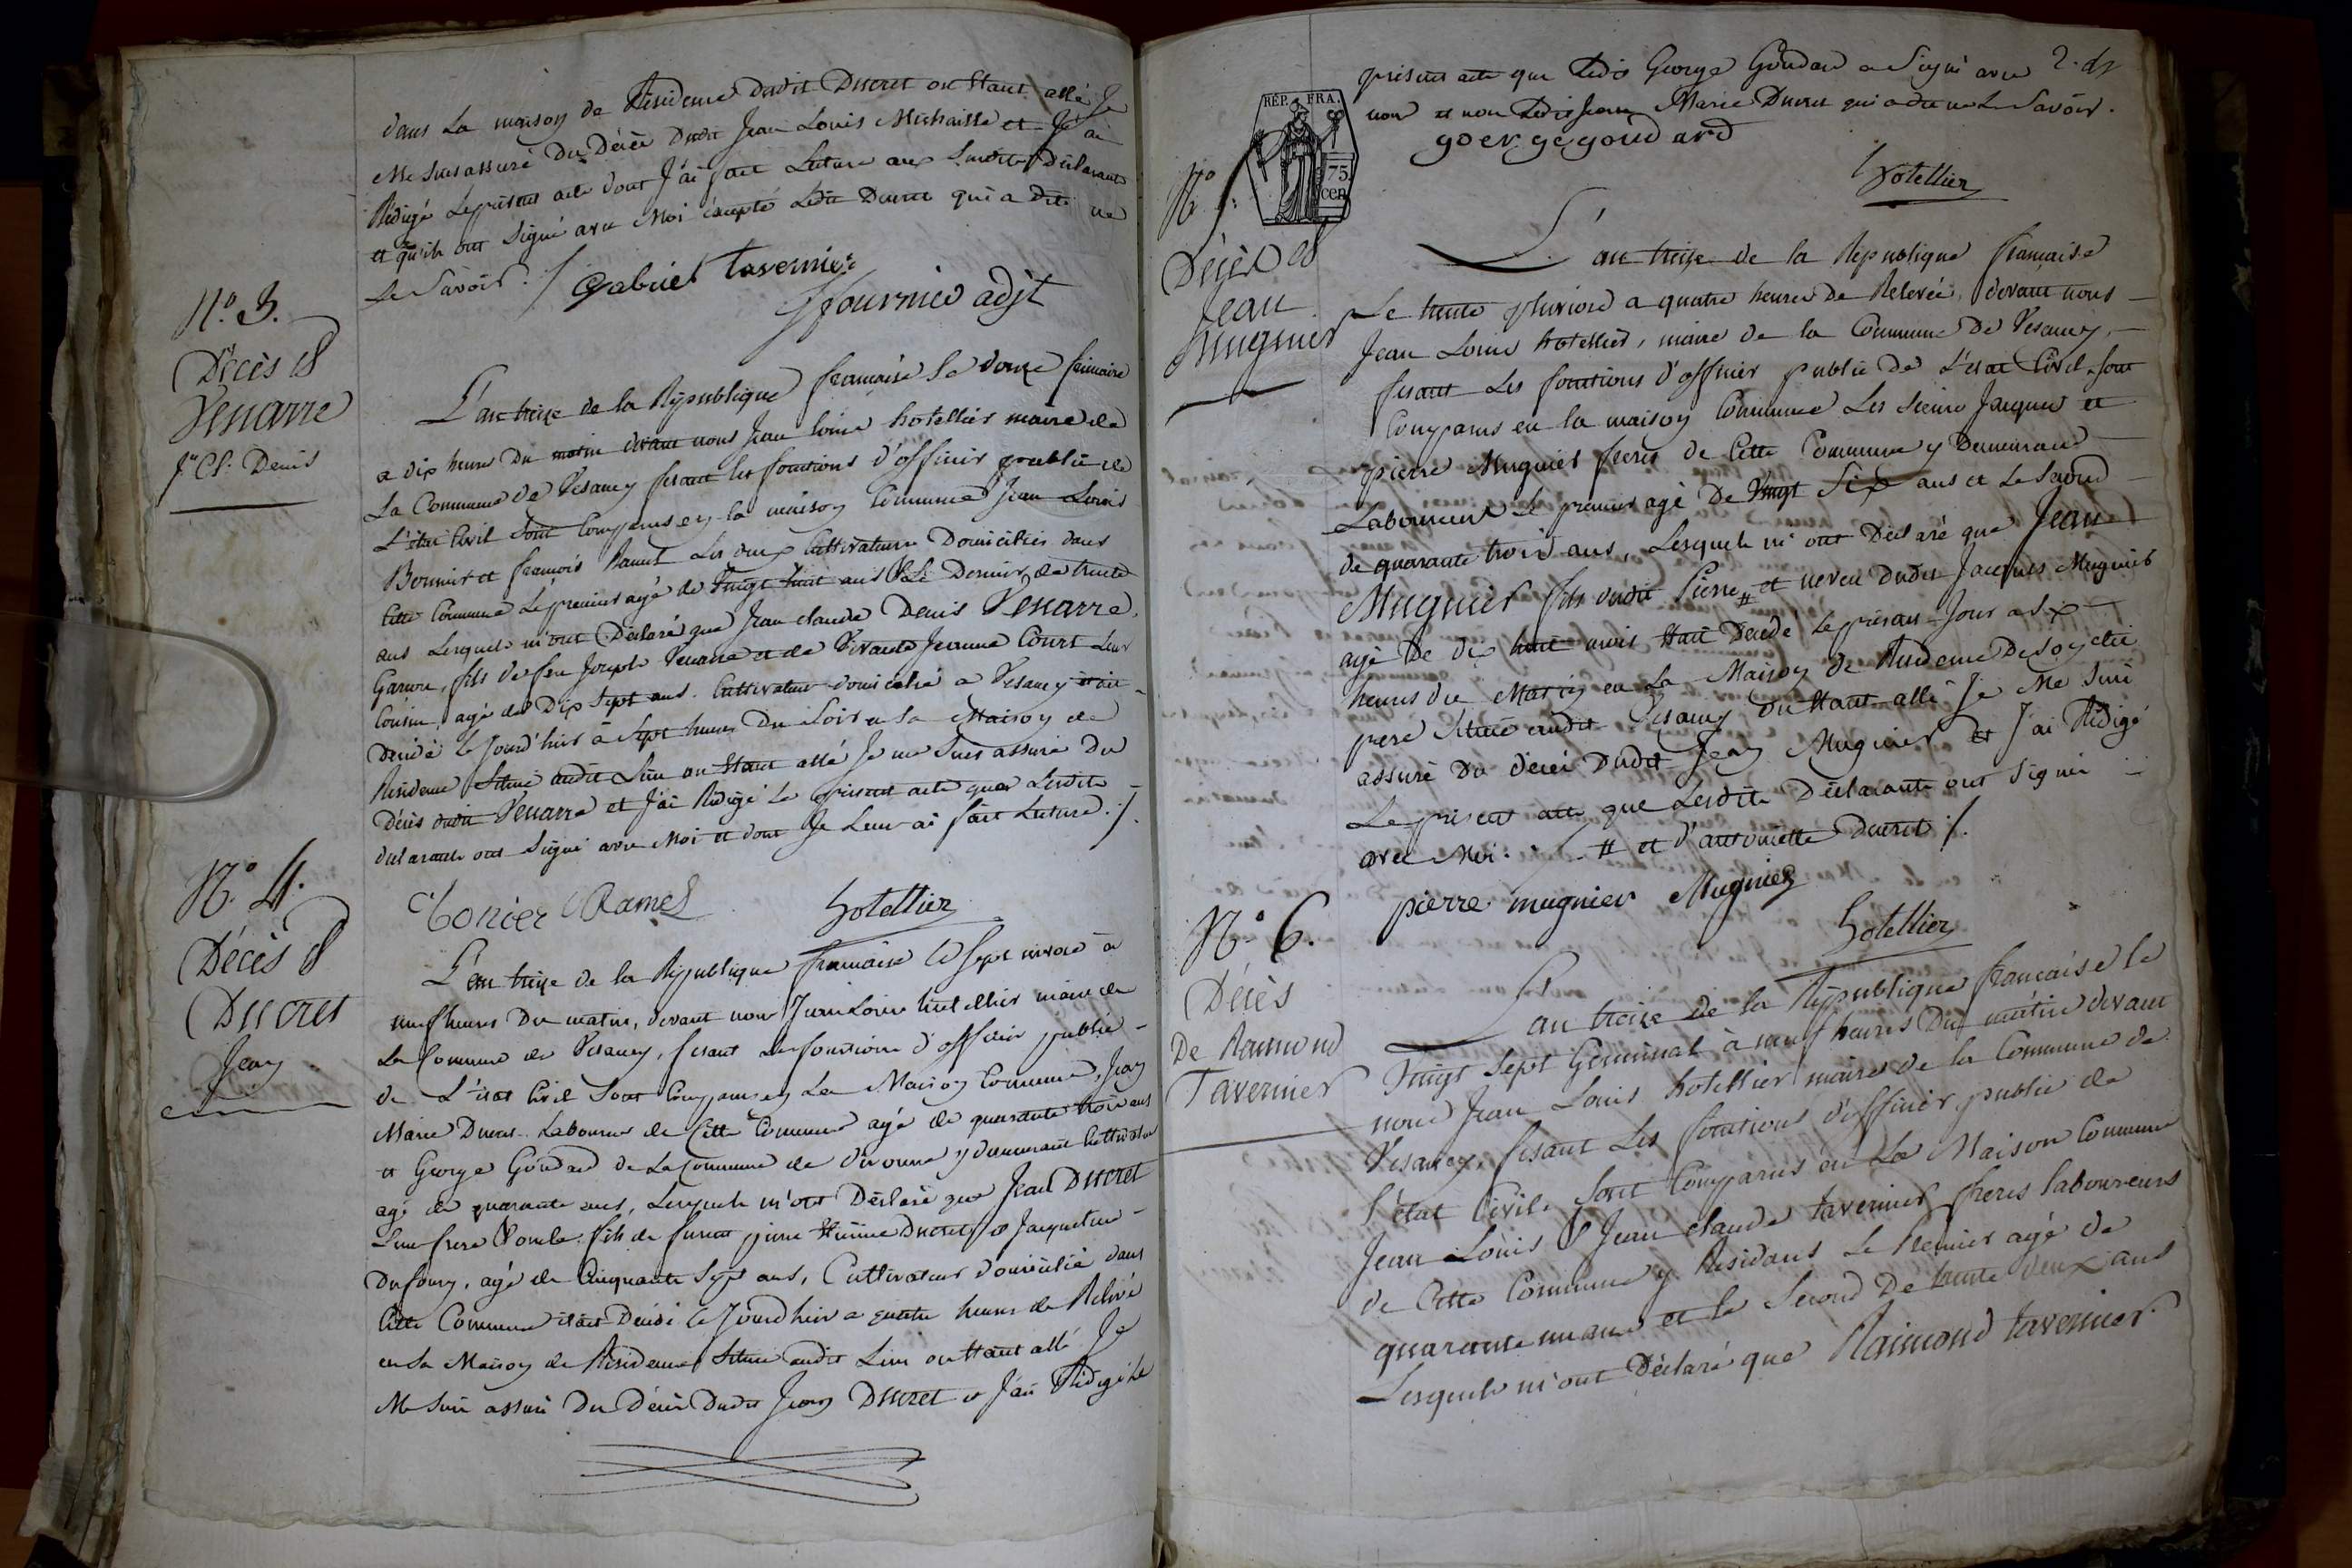 dans La maison de Résidence dudit Ducret ou Etant allé Je
Me suis assuré Du Décès Dudit Jean Louis Michaille et J'ai
Rédigé Le présent acte dont J'ai fait Lecture aux Susdits Déclarants
et qu'ils ont Signé avec Moi éxcepté Ledit Ducret qui a Dit ne
Le Savoir ./.
Gabriel tavernier
Fournier adjt
N.o 3.
Décès de
Venarre
J.n Cl. Denis
L'an treize de la République française le douze frimaire
a dix heures Du matin devant nous Jean Louis hotellier maire de
La Commune de Vesancy fesant les fonctions d'officier public de
L'état Civil Sont Comparus en la maison Commune Jean Louis
et françois Ramel Les deux Cultivateurs Domiciliés dans
Cette Commune Le premier agé de Vingt huit ans & Le Dernier de trente
ans Lesquels m'ont Déclaré que Jean claude Denis Venarre,
Garçon, fils de feu Joseph Venarre et de Vivante Jeanne Court Leur
Cousin, agé de Dix Sept ans. Cultivateur domicilié a Vesancy Etait
Décédé Le Jourd'hier à Sept heures Du Soir en Sa Maison de
Résidence Située audit Lieu ou Etant allé Je me Suis assuré Du
Décès dudit Venarre et J'ai Rédigé Le présent acte que Lesdits
declarants ont Signé avec Moi et dont Je Leur ai fait Lecture ./.
Ramel
hotellier
N.o 4.
Décès de
Ducret
Jean
L'an treize de la République française le Sept nivose à
neuf heures Du matin, devant nous Jean Louis hotellier maire de
La Commune de Vesancy, fesant les fonctions d'officier public
de L'état Civil Sont Comparus en La Maison Commune, Jean
Marie Ducret Laboureur de Cette Commune agé de quarante trois ans
et George Goudard de La Commune de divonne y demeurant Cultivateur
agé de quarante ans, Lesquels m'ont Déclaré que Jean Ducret
Leur frere & oncle fils de furent pierre Etienne Ducret & Jacqueline
Dufour, agé de Cinquante Sept ans, Cultivateur domicilié dans
Cette Commune était Décédé le Jourd'hier a quatre heures de Relevé
en Sa Maison de Résidence Située audit Lieu ou Etant allé Je
Me Suis assuré Du Décès Dudit Jean Ducret & J'ai Rédigé le
présent acte que Ledit George Goudard a Signé avec
nous et non Ledit Jean Marie Ducret qui a dit ne Le Savoir.
goergegoudard
hotellier
RÉP. FRA.
75
cen
N.o 5.
Décès de
Jean
Mugnier
L'an treize de la République française
Le trente pluviose a quatre heures De Relevée, devant nous
Jean Louis hotellier, maire de la Commune De Vesancy,
fesant Les fonctions d'officier public de L'état Civil, Sont
Comparus en la maison Commune Les Sieurs Jacques et
pierre Mugnier freres de Cette Commune y Demeurand
Laboureurs Le premier agé De Vingt Six ans et Le Second
de quarante trois ans, Lesquels m'ont Déclaré que Jean
Mugnier fils dudit Pierre # et neveu dudit Jacques Mugnier
agé De dix huit mois Etait Décédé Le présent Jour a Six
heures du Matin en La Maison de Résidence De Son dit
pere Située audit Vesancy ou Etant allé Je Me Suis
assuré Du décès Dudit Jean Mugnier et J'ai Rédigé
Le présent acte que Lesdits Déclarants ont Signé
avec Moi. # et d'antoinette Ducret ./.
pierre mugnier Mugnier
hotellier
N.o 6.
Décès
De Raimond
Tavernier
L'an treize de la République française le
Vingt Sept Germinal à neuf heures Du matin devant
nous Jean Louis hotellier maire de la Commune de
Vesancy, fesant Les fonctions d'officier public de
l'état Civil, Sont Comparus en La Maison Commune
Jean Louis & Jean claude tavernier freres laboureurs
de Cette Commune y Residans Le Premier agé de
quarante un ans et le Second De trente deux ans
Lesquels m'ont Déclaré que Raimond tavernier